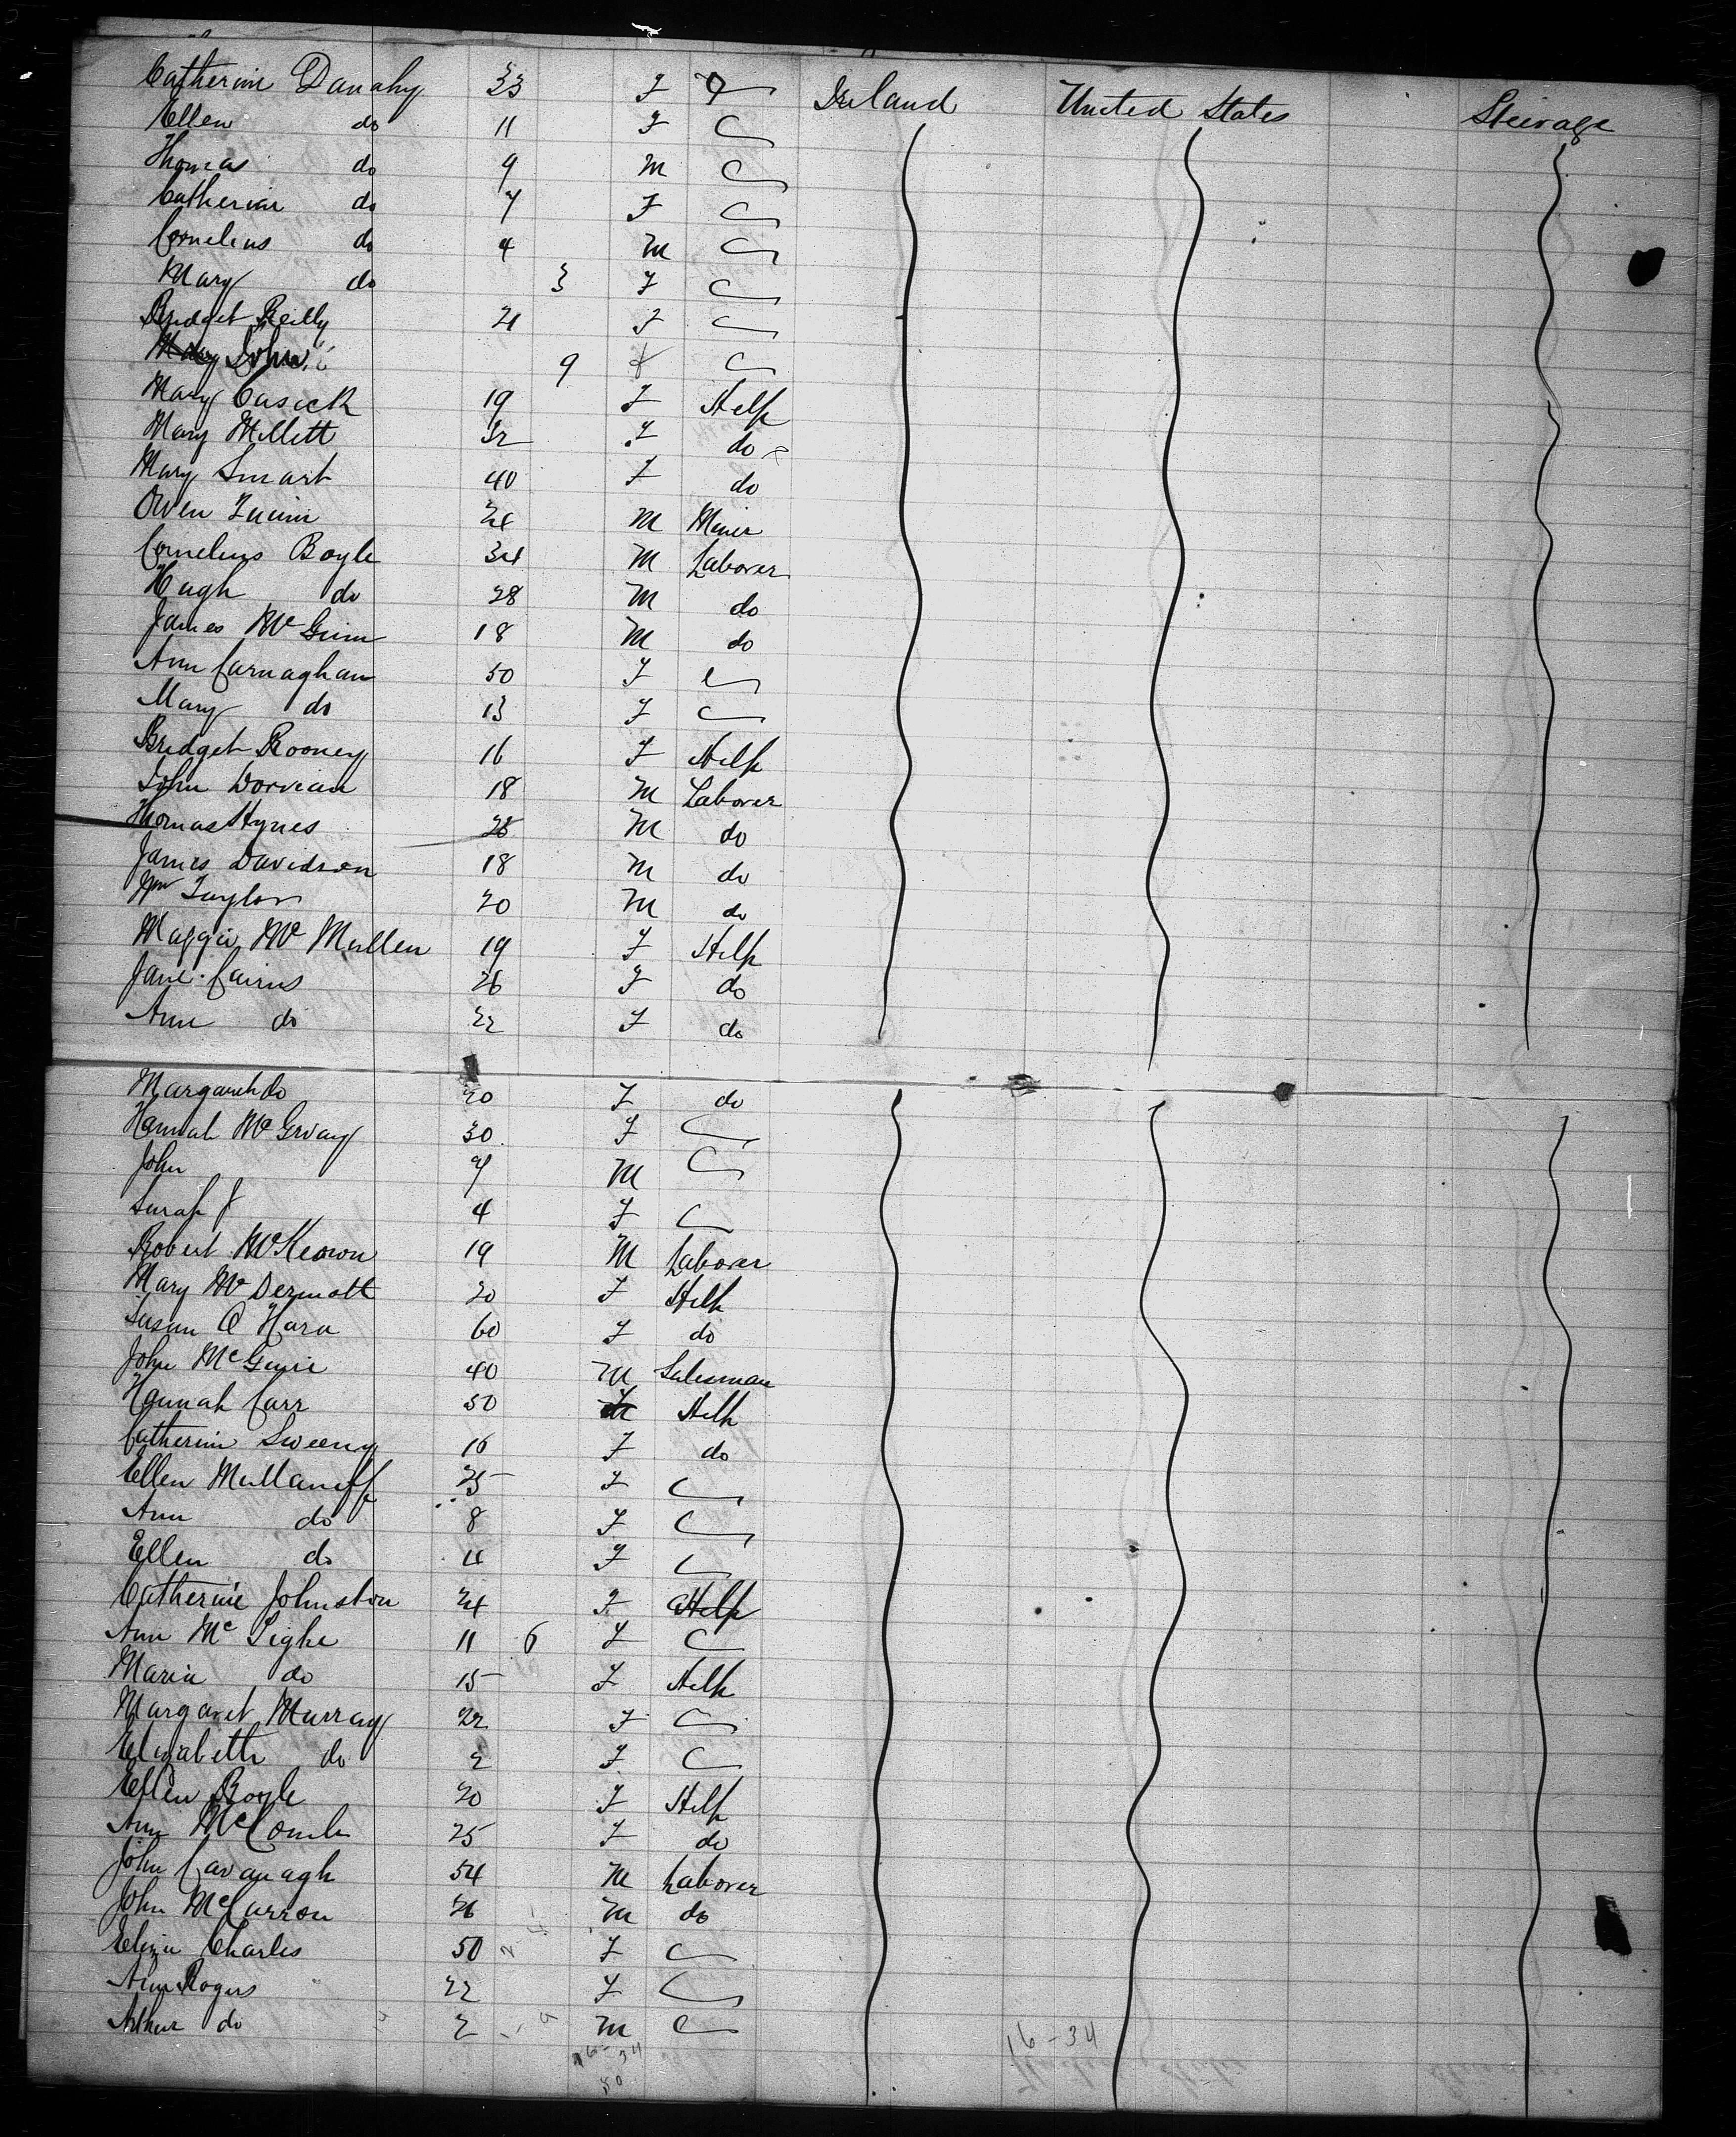 Catherine Danahy 33 F Ireland United States Steerage
Ellen do 11 F
Thomas do 9 M
Catherine do 7 F
Cornelius do 4 M
Mary do 3 F
Bridget Reilly 21 F
Mary John 9
Mary Cusack 19 F Help
Mary Mellett 32 F do
Mary Smart 40 F do
Owen 24 M Miner
Cornelius Boyle 34 M Laborer
Hugh do 28 M do
James McGinn 18 M do
Ann Carnaghan 50 F
Mary do 13 F
Bridget Rooney 16 F Help
John Dorrian 18 M Laborer
Thomas Hynes 28 M do
James Davidson 18 M do
Wm Taylor 20 M do
Maggie McMullen 19 F Help
Jane Cairns 26 F do
Ann do 22 F do
Margaret do 20 F do
Hannah 30 F
John 7 M
Sarah J 4 F
Robert McKeown 19 M Laborer
Mary McDermott 20 F Help
Susan O Hara 60 F do
John McGuire 40 M Salesman
Hannah Carr 50 F Help
Catherine Sweeny 16 F do
Ellen 25 F
Ann do 8 F
Ellen do 4 F
Catherine Johnston 24 F Help
Ann McTighe 11 6 F
Maria do 15 F Help
Margaret Murray 22 F
Elizabeth do 2 F
Ellen Boyle 20 F Help
Ann McComb 25 F do
John Cavanagh 54 M Laborer
John McCarron 26 M do
Eliza Charles 50 F
Ann Rogers 22 F
Arthur do 2 M
16-34